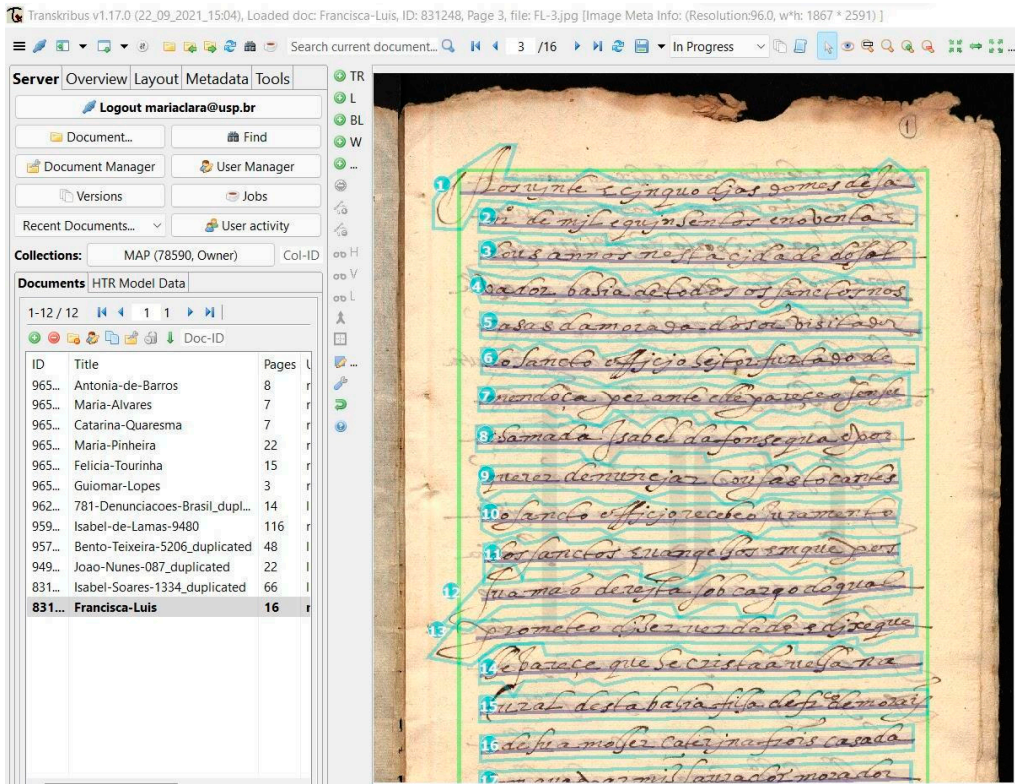 Transkribus v1.17.0 (22_09_2021_15:04), Loaded doc: Francisca-Luis, ID: 831248, Page 3, file: FL-3.jpg [Image Meta Info: (Resolution:96.0, w*h: 1867 * 2591) ]
Search current document... 3 /16 In Progress
Server Overview Layout Metadata Tools
Logout mariaclara@usp.br
Document... Find
Document Manager User Manager
Versions Jobs
Recent Documents... User activity
Collections: MAP (78590, Owner) Col-ID
Documents HTR Model Data
1-12 / 12 1 1
Doc-ID
ID Title Pages
965... Antonia-de-Barros 8
965... Maria-Alvares 7
965... Catarina-Quaresma 7
965... Maria-Pinheira 22
965... Felicia-Tourinha 15
965... Guiomar-Lopes 3
962... 781-Denunciacoes-Brasil_dupl... 14
959... Isabel-de-Lamas-9480 116
957... Bento-Teixeira-5206_duplicated 48
949... Joao-Nunes-087_duplicated 22
831... Isabel-Soares-1334_duplicated 66
831... Francisca-Luis 16
TR
L
BL
W
...
H
V
L
...
1
1 Aos uinte e cinquo djas do mes de Ja
2 nro de mil e quinsentos e nouenta e
3 dous annos nesta cidade do sal
4 uador bahia de todos os sanctos nas
5 casas da morada do sor visitador
6 do sancto officio Eitor furtado de
7 mendoça perante elle pareceo sem ser
8 chamada Isabel da fonsequa e por
9 querer denunciar cousas tocantes
10 ao sancto officio recebeo juramento
11 dos sanctos euangelhos em que pos
12 sua mão dereita sob cargo do qual
13 prometeo dizer uerdade e dixe que
14 lhe parece que he cristãa uelha na
15 tural desta bahia filha de
16 e de sua molher caterina frois casada
17 laurador morador